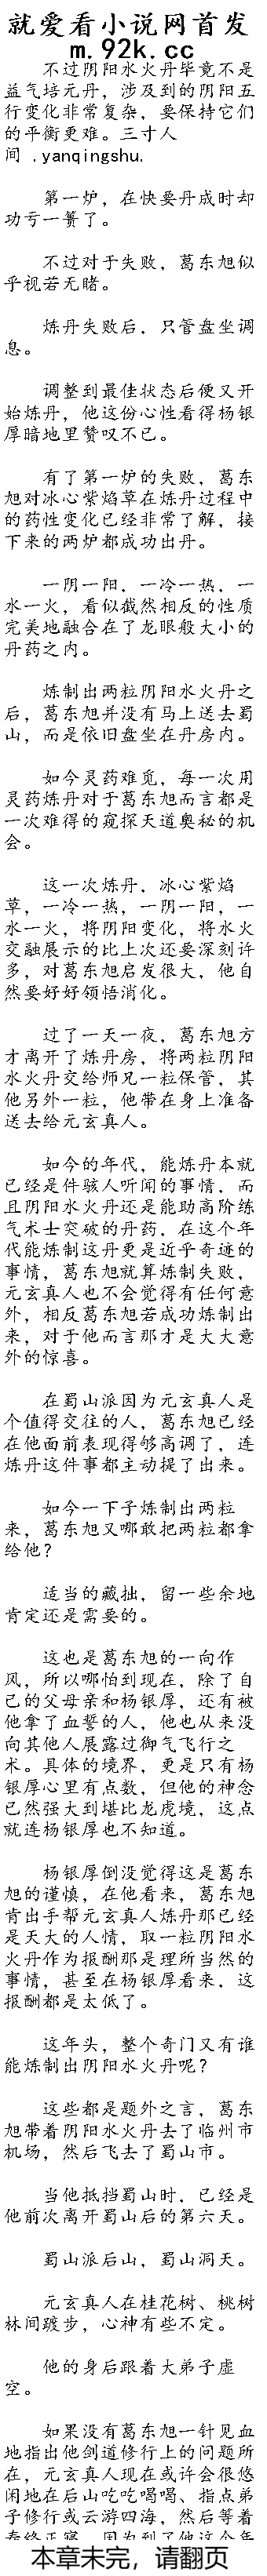 就爱看小说网首发
m.92k.cc
不过阴阳水火丹毕竟不是
益气培元丹，涉及到的阴阳五
行变化非常复杂，要保持它们
的平衡更难。三寸人
间 .yanqingshu.
第一炉，在快要丹成时却
功亏一篑了。
不过对于失败，葛东旭似
乎视若无睹。
炼丹失败后，只管盘坐调
息。
调整到最佳状态后便又开
始炼丹，他这份心性看得杨银
厚暗地里赞叹不已。
有了第一炉的失败，葛东
旭对冰心紫焰草在炼丹过程中
的药性变化已经非常了解，接
下来的两炉都成功出丹。
一阴一阳，一冷一热，一
水一火，看似截然相反的性质
完美地融合在了龙眼般大小的
丹药之内。
炼制出两粒阴阳水火丹之
后，葛东旭并没有马上送去蜀
山，而是依旧盘坐在丹房内。
如今灵药难觅，每一次用
灵药炼丹对于葛东旭而言都是
一次难得的窥探天道奥秘的机
会。
这一次炼丹，冰心紫焰
草，一冷一热，一阴一阳，一
水一火，将阴阳变化，将水火
交融展示的比上次还要深刻许
多，对葛东旭启发很大，他自
然要好好领悟消化。
过了一天一夜，葛东旭方
才离开了炼丹房，将两粒阴阳
水火丹交给师兄一粒保管，其
他另外一粒，他带在身上准备
送去给元玄真人。
如今的年代，能炼丹本就
已经是件骇人听闻的事情，而
且阴阳水火丹还是能助高阶练
气术士突破的丹药，在这个年
代能炼制这丹更是近乎奇迹的
事情，葛东旭就算炼制失败，
元玄真人也不会觉得有任何意
外，相反葛东旭若成功炼制出
来，对于他而言那才是大大意
外的惊喜。
在蜀山派因为元玄真人是
个值得交往的人，葛东旭已经
在他面前表现得够高调了，连
炼丹这件事都主动提了出来。
如今一下子炼制出两粒
来，葛东旭又哪敢把两粒都拿
给他？
适当的藏拙，留一些余地
肯定还是需要的。
这也是葛东旭的一向作
风，所以哪怕到现在，除了自
己的父母亲和杨银厚，还有被
他拿了血誓的人，他也从来没
向其他人展露过御气飞行之
术。具体的境界，更是只有杨
银厚心里有点数，但他的神念
已然强大到堪比龙虎境，这点
就连杨银厚也不知道。
杨银厚倒没觉得这是葛东
旭的谨慎，在他看来，葛东旭
肯出手帮元玄真人炼丹那已经
是天大的人情，取一粒阴阳水
火丹作为报酬那是理所当然的
事情，甚至在杨银厚看来，这
报酬都是太低了。
这年头，整个奇门又有谁
能炼制出阴阳水火丹呢？
这些都是题外之言，葛东
旭带着阴阳水火丹去了临州市
机场，然后飞去了蜀山市。
当他抵挡蜀山时，已经是
他前次离开蜀山后的第六天。
蜀山派后山，蜀山洞天。
元玄真人在桂花树、桃树
林间踱步，心神有些不定。
他的身后跟着大弟子虚
空。
如果没有葛东旭一针见血
地指出他剑道修行上的问题所
在，元玄真人现在或许会很悠
闲地在后山吃吃喝喝、指点弟
子修行或云游四海，然后等着
寿终正寝，因为到了他这个年
本章未完，请翻页